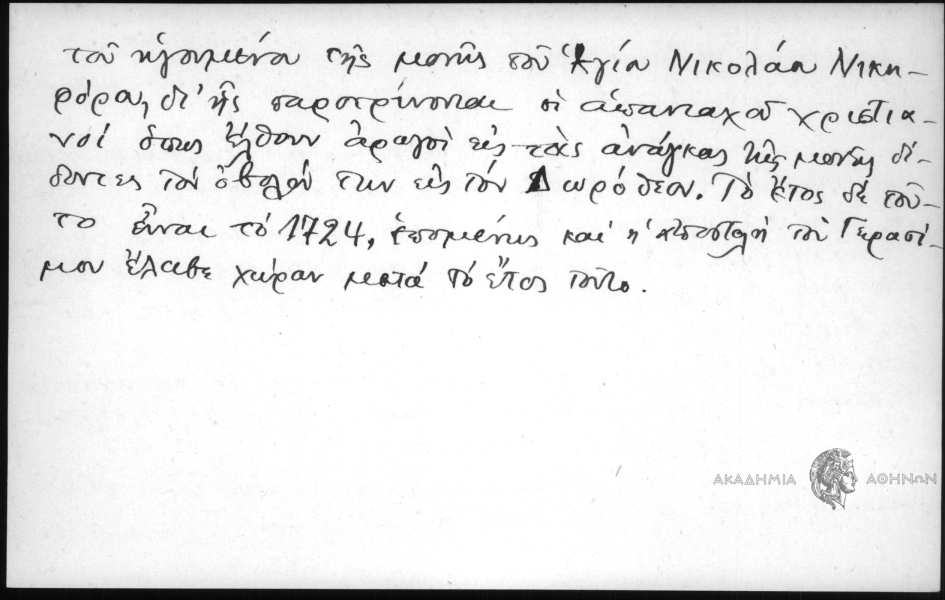 τοῦ ἡγουμένου τῆς μονῆς τοῦ Ἁγίου Νικολάου Νικη-
φόρου, δι' ἧς παροτρύνονται οἱ ἁπανταχοῦ χριστια-
νοί ὅπως ἔλθουν ἀρωγοὶ εἰς τὰς ἀνάγκας τῆς μονῆς δί-
δοντες τὸν ὀβολόν των εἰς τόν Δωρόθεον. Τὸ ἔτος δέ τοῦ-
το εἶναι τό 1724, ἑπομένως καί ἡ ἀποστολή τοῦ Γερασί-
μου ἔλαβε χώραν μετά τό ἔτος τοῦτο.
ΑΚΑΔΗΜΙΑ ΑΘΗΝΩΝ